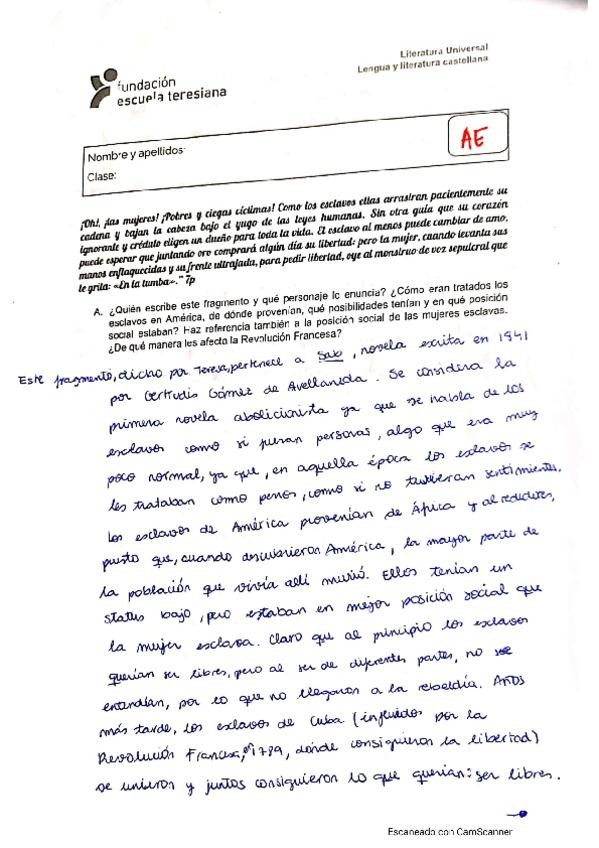 Literatura Universal
Lengua y literatura castellana
fundación
escuela teresiana
Nombre y apellidos:
Clase:
AE
¡Oh!, ¡las mujeres! ¡Pobres y ciegas víctimas! Como los esclavos ellas arrastran pacientemente su
cadena y bajan la cabeza bajo el yugo de las leyes humanas. Sin otra guía que su corazón
ignorante y crédulo eligen un dueño para toda la vida. El esclavo al menos puede cambiar de amo,
puede esperar que juntando oro comprará algún día su libertad: pero la mujer, cuando levanta sus
manos enflaquecidas y su frente ultrajada, para pedir libertad, oye al monstruo de voz sepulcral que
le grita: «En la tumba»." 7p
A. ¿Quién escribe este fragmento y qué personaje lo enuncia? ¿Cómo eran tratados los
esclavos en América, de dónde provenían, qué posibilidades tenían y en qué posición
social estaban? Haz referencia también a la posición social de las mujeres esclavas.
¿De qué manera les afecta la Revolución Francesa?
Este fragmento, dicho por Teresa, pertenece a Sab, novela escrita en 1841
por Gertrudis Gómez de Avellaneda. Se considera la
primera novela abolicionista ya que se habla de los
esclavos como si fueran personas, algo que era muy
poco normal, ya que, en aquella época los esclavos se
les trataban como perros, como si no tuvieran sentimientos.
Los esclavos de América provenían de África y alrededores,
puesto que, cuando descubrieron América, la mayor parte de
la población que vivía allí murió. Ellos tenían un
status bajo, pero estaban en mejor posición social que
la mujer esclava. Claro que al principio los esclavos
querían ser libres, pero al ser de diferentes partes, no se
entendían, por lo que no llegaron a la rebeldía. Años
más tarde, los esclavos de Cuba (influidos por la
Revolución Francesa, 1789, donde consiguieron la libertad)
se unieron y juntos consiguieron lo que querían: ser libres.
Escaneado con CamScanner